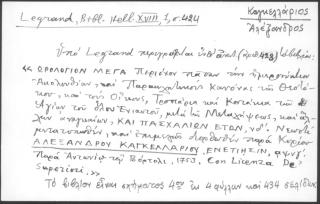 Legrand, Bibl. Hell. XVIII, 1, σ. 424
Καγκελλάριος
Ἀλέξανδρος
Ὑπὸ Legrand περιγράφεται
« ΩΡΟΛΟΓΙΟΝ ΜΕΓΑ Περιέχον πᾶσαν τὴν ἡμερονύκτιον
Ἀκολουθίαν, καὶ Παρακλητικοὺς Κανόνας τῆς Θεοτό-
κου, καὶ τοὺς Οἴκους, Τροπάρια καὶ Κοντάκια τῶν
Ἁγίων τοῦ ὅλου Ἐνιαυτοῦ, μετὰ τῆς Μεταλήψεως, καὶ ἄλ-
λων ἀναγκαίων, ΚΑΙ ΠΑΣΧΑΛΙΟΝ ΕΤΩΝ, Νεωστὶ
μετατυπωθὲν, καὶ ἐπιμελῶς διορθωθὲν παρὰ Κυρίου
ΑΛΕΞΑΝΔΡΟΥ ΚΑΓΚΕΛΛΑΡΙΟΥ, ΕΝΕΤΙΗΣΙΝ, αψνγ΄.
Παρὰ Ἀντωνίῳ τῷ Βόρτολι. 1753. Con Licenza De'
Superiori.»
Τὸ βιβλίον εἶναι σχήματος 4ον ἐκ 4 φύλλων καὶ 434 σελίδων